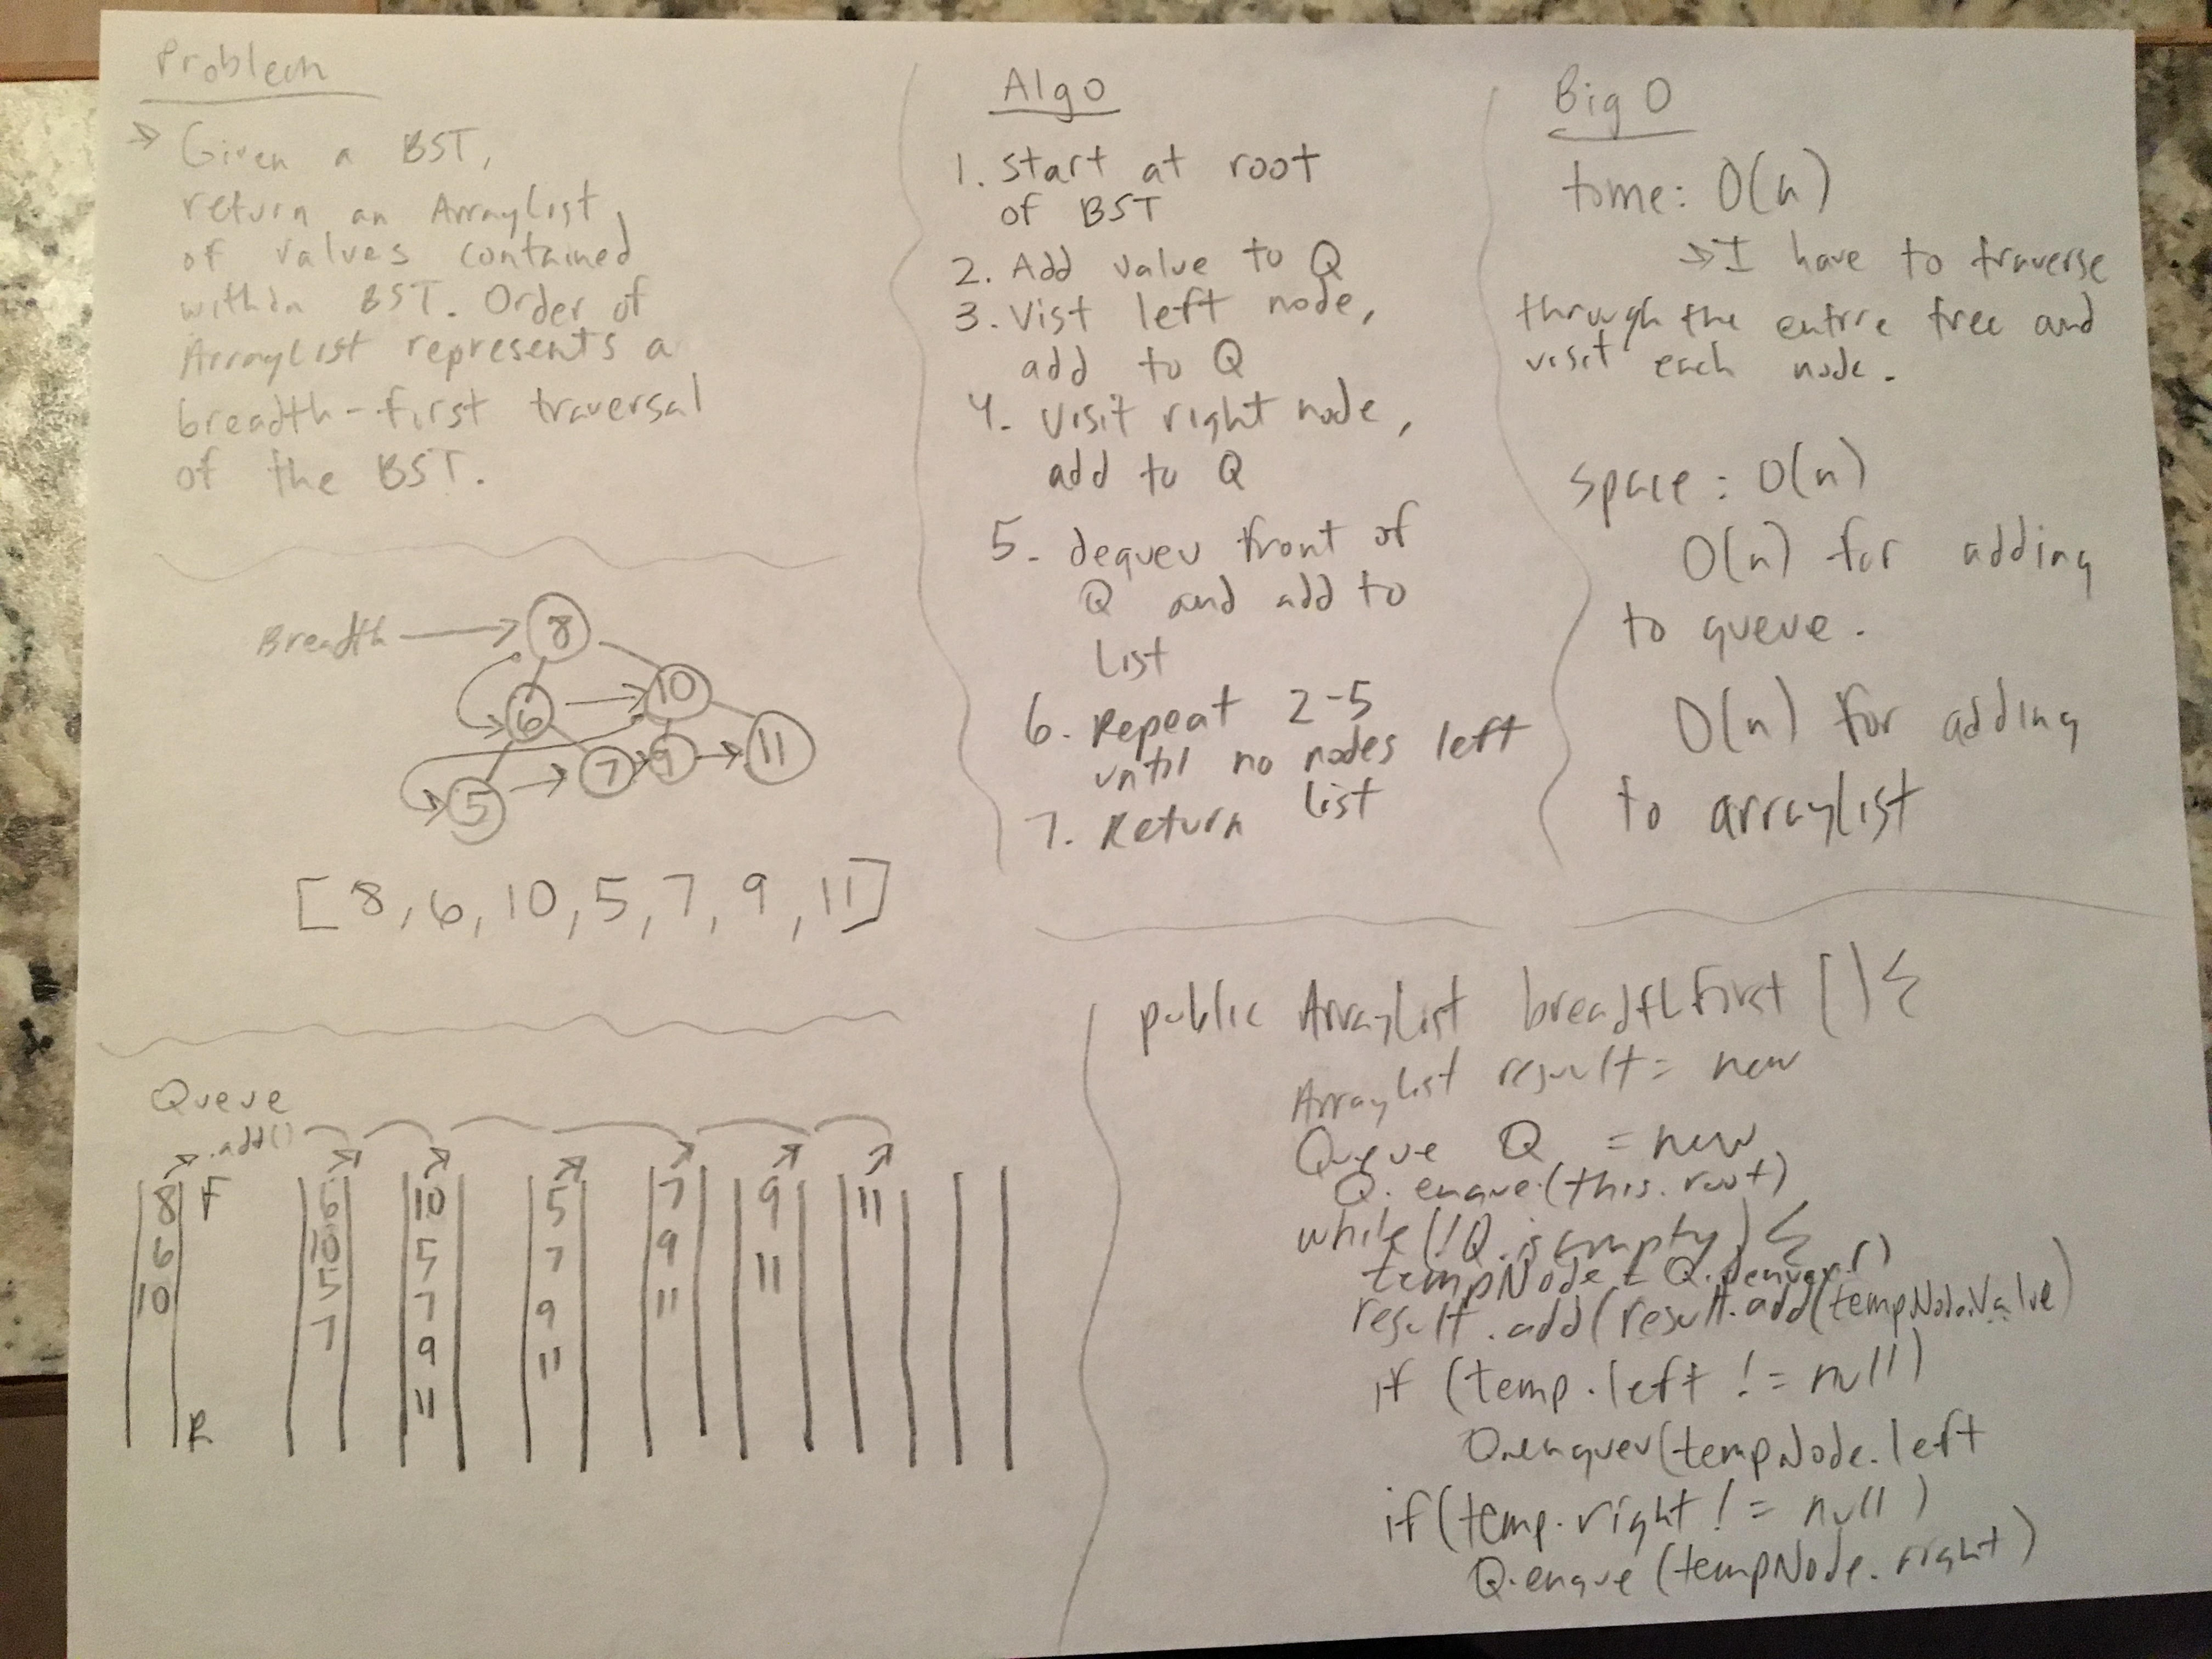 Problem
→ Given a BST,
return an ArrayList,
of values contained
within BST. Order of
ArrayList represents a
breadth-first traversal
of the BST.
Breadth → 8
6 → 10
5 → 7 → 9 → 11
[8, 6, 10, 5, 7, 9, 11]
Queue
.add()
8 F 6 10 5 7 9 11
6 10 5 7 9 11
10 5 7 9 11
7 9 11
11
R
Algo
1. Start at root
of BST
2. Add value to Q
3. Vist left node,
add to Q
4. Visit right node,
add to Q
5. dequeu front of
Q and add to
List
6. Repeat 2-5
until no nodes left
7. Return list
Big O
time: O(n)
→ I have to traverse
through the entire tree and
visit each node.
space: O(n)
O(n) for adding
to queue.
O(n) for adding
to arraylist
public ArrayList breadthFirst () {
ArrayList result = new
Queue Q = new
Q. enque(this.root)
while (!Q.isempty) {
tempNode = Q.
result.add(result.add(tempNode.Value)
if (temp.left != null)
Q.enqueu(tempNode.left
if(temp.right != null)
Q.enque (tempNode.right)